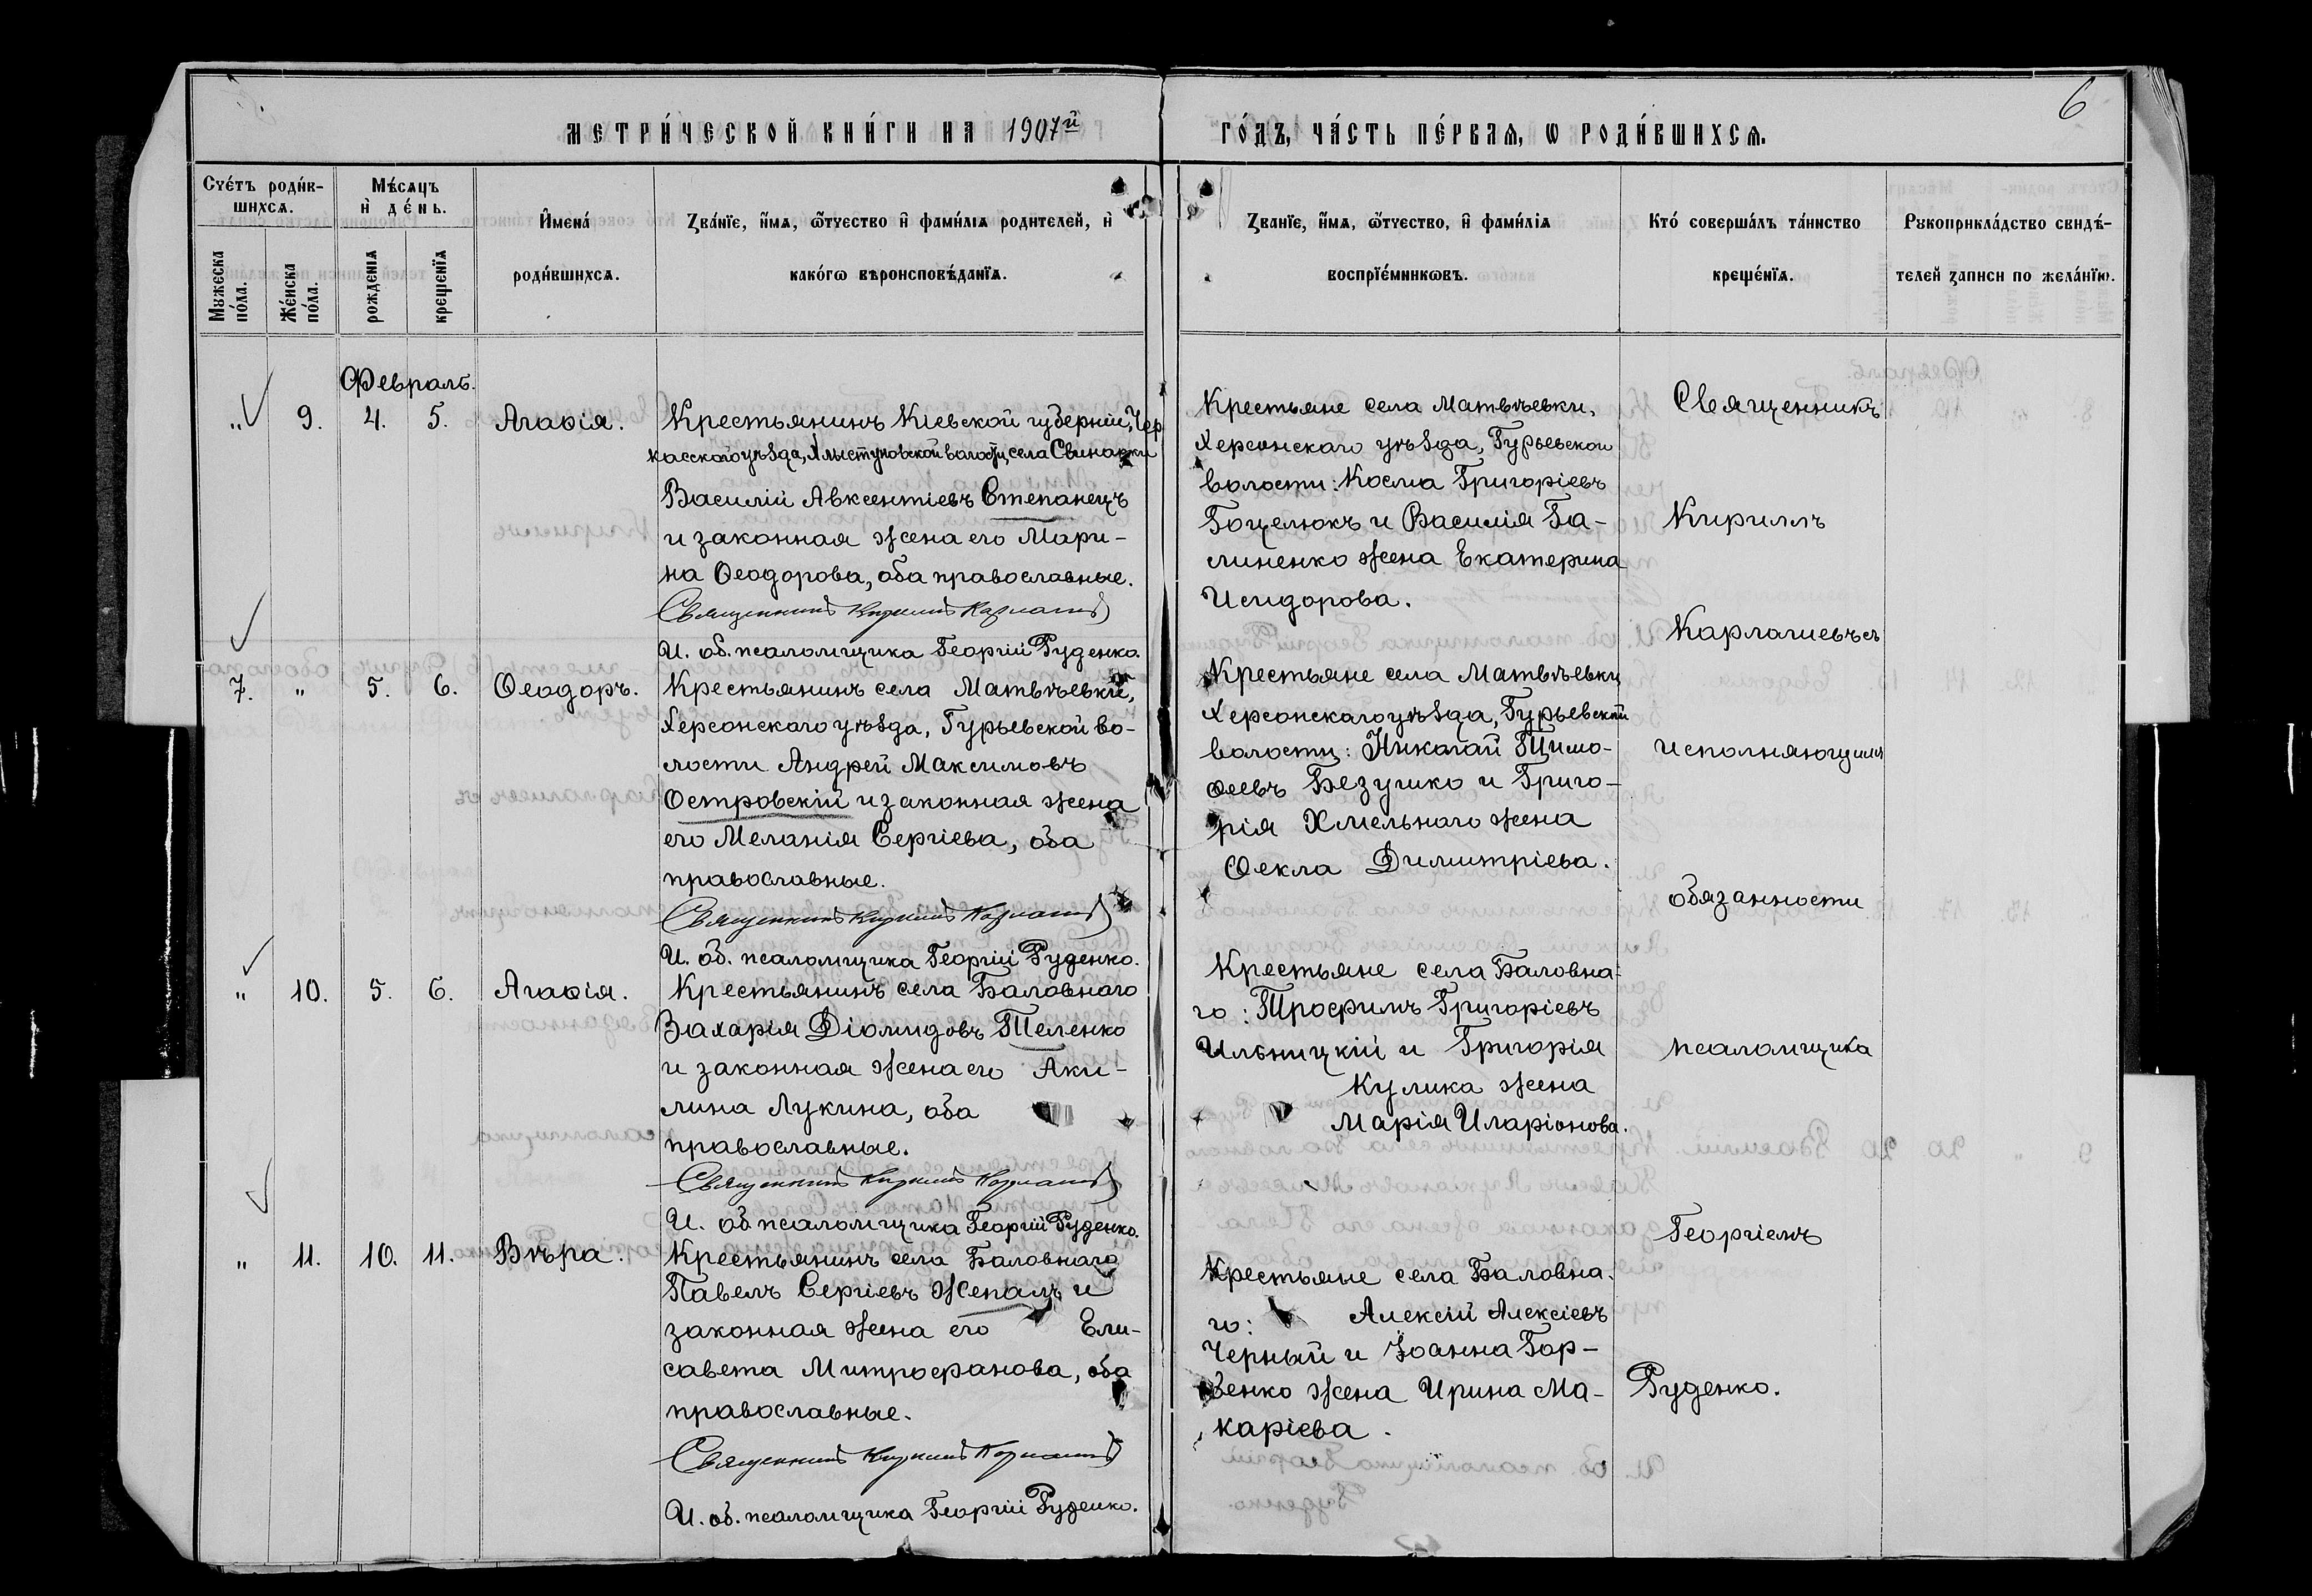 6
МЕТРИ́ЧЕСКОЙ КНИ́ГИ НА 1907й ГО́ДЪ, ЧА́СТЬ ПЕ́РВАЯ, Ѡ РОДИ́ВШИХСѦ.
Счétъ роди́в-
шихсѧ.
Мужеска по́ла.
Же́нска по́ла.
Мѣ́сѧцъ
и҆ де́нь.
рожденїѧ
крещенїѧ
И҆мена́
роди́вшихсѧ.
Ꙁва́нїе, и҆́мѧ, ѻ҆́тчество и҆ фами́лїѧ родителей, и҆
како́гѡ вѣроисповѣ́данїѧ.
Ꙁванїе, и҆́мѧ, ѻ҆́тчество, и҆ фами́лїѧ
воспрїе́мникѡвъ.
Кто́ соверша́лъ та́инство
креще́нїѧ.
Рꙋкоприкла́дство свидѣ́-
телей ꙁаписи по жела́нїю.
Февраль.
" 9. 4. 5. Агаѳія.
Крестьянинъ Кіевской губерніи, Чер
касскаго уѣзда, Хлыстуновской волости, села Свинарки
Василій Авксентіевъ Степанецъ
и законная жена его Мари-
на Ѳеодорова, оба православные.
Священникъ Кириллъ
И. об. псаломщика Георгій Руденко.
Крестьяне села Матвѣевки,
Херсонскаго уѣзда, Гурьевской
волости: Косма Григоріевъ
Гоцелюкъ и Василія Га-
линенко жена Екатерина
Исидорова.
Священникъ
Кириллъ
Карлашевъ съ
исполняющимъ
обязанности
псаломщика
Георгіемъ
Руденко.
7. " 5. 6. Ѳеодоръ.
Крестьянинъ села Матвѣевки,
Херсонскаго уѣзда, Гурьевской во-
лости Андрей Максимовъ
Островскій и законная жена
его Меланія Сергіева, оба
православные.
Священникъ Кириллъ
И. об. псаломщика Георгій Руденко.
Крестьяне села Матвѣевки
Херсонскаго уѣзда, Гурьевской
волости: Николай Тимо-
ѳеевъ Безушко и Григо-
рія Хмельнаго жена
Ѳекла Димитріева.
" 10. 5. 6. Агаѳія.
Крестьянинъ села Баловнаго
Захарія Діомидовъ Теленко
и законная жена его Аки-
лина Лукина, оба
православные.
Священникъ Кириллъ
И. об. псаломщика Георгій Руденко.
Крестьяне села Баловна-
го: Трофимъ Григоріевъ
Ильницкій и Григорія
Кулика жена
Марія Иларіонова.
" 11. 10. 11. Вѣра.
Крестьянинъ села Баловнаго
Павелъ Сергіевъ Жепалъ и
законная жена его Ели-
савета Митрофанова, оба
православные.
Священникъ Кириллъ
И. об. псаломщика Георгій Руденко.
Крестьяне села Баловна-
го: Алексій Алексіевъ
Черный и Іоанна Гор-
бенко жена Ирина Ма-
каріева.